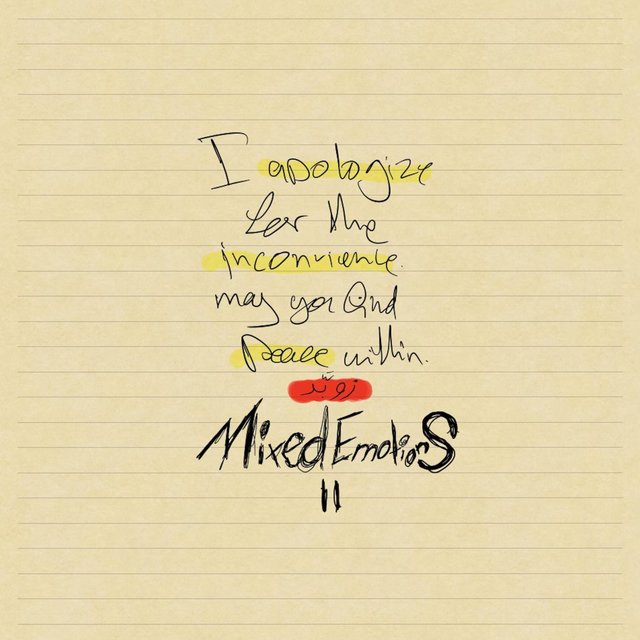 I apologize
for the
inconvience.
may you find
peace within.
زوبّد
Mixed EmotionS
II